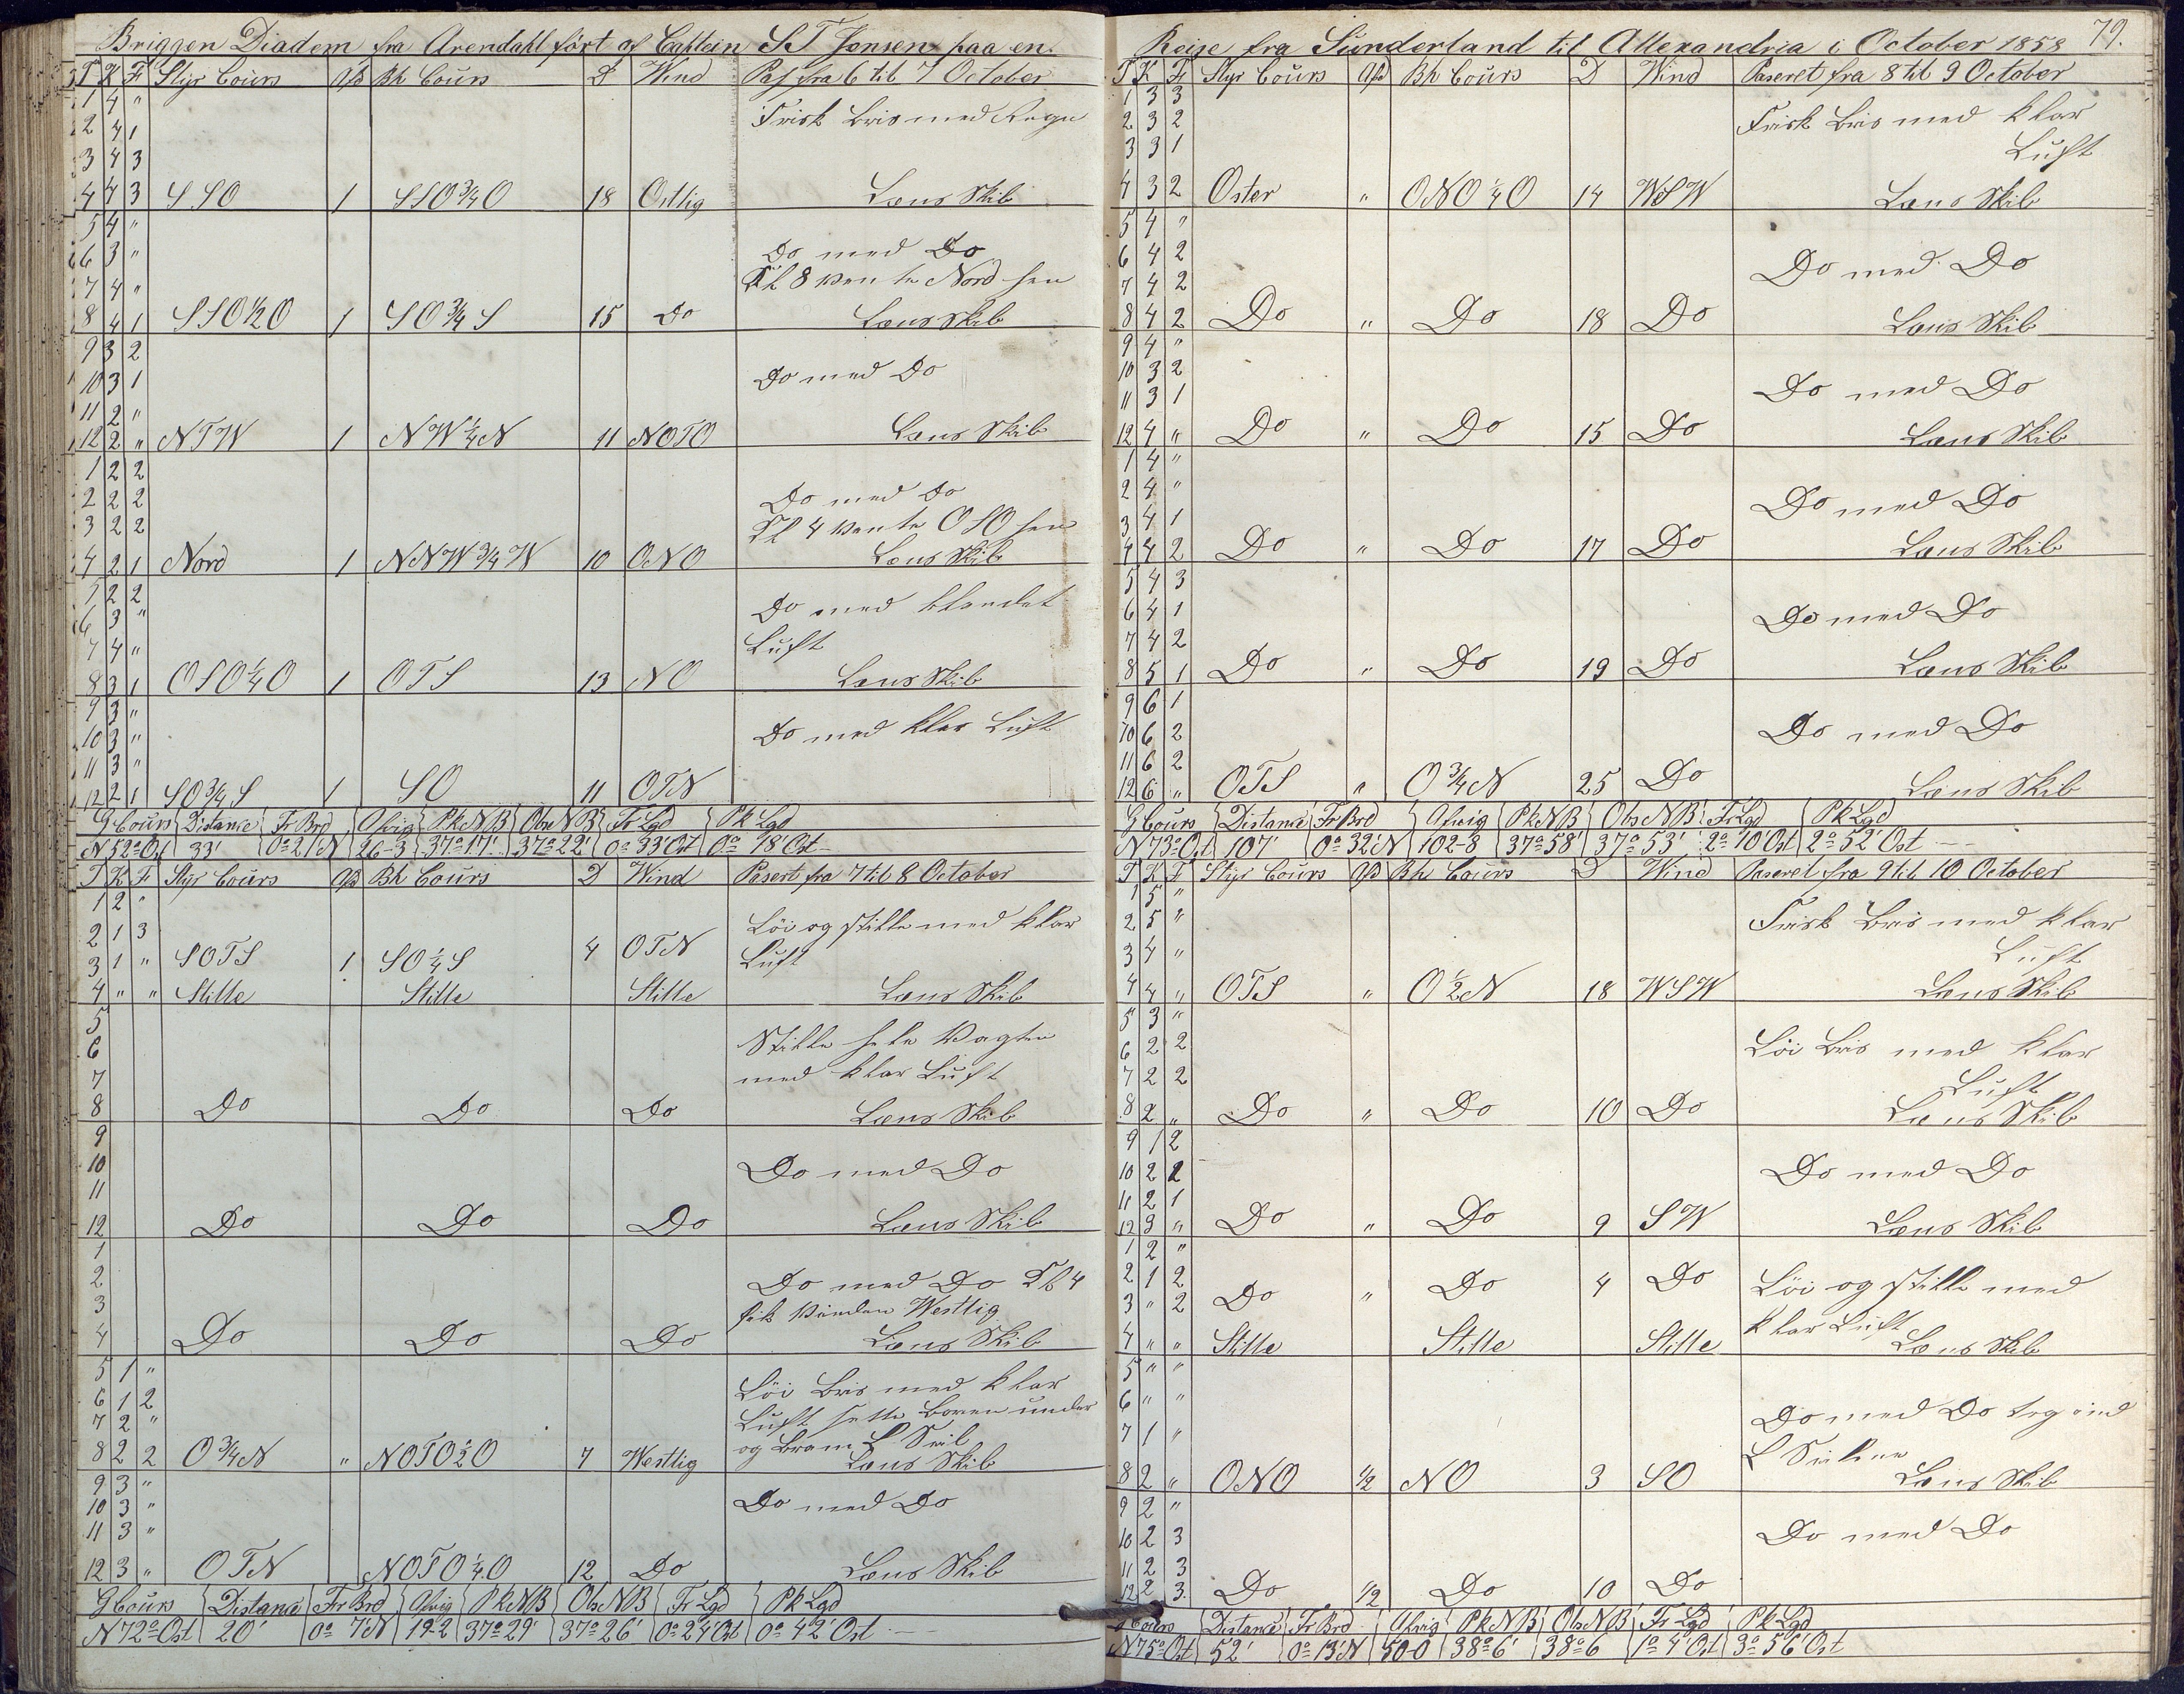 Briggen Diadem fra Arendahl fört af Captein S T Jensen paa en
T K F Styr Cours Afd Bh Cours D Wind Pas fra 6 til 7 October
1 4 "
2 4 1 Frisk Bris med Regn
3 4 3
4 4 3 SSO 1 SSO 3/4 O 18 Ostlig Læns Skib
5 4 "
6 3 " Do med Do
7 4 " Kl 8 vente Nord hen
8 4 1 SSO 1/2 O 1 SO 3/4 S 15 Do Læns Skib
9 3 2
10 3 1 Do med Do
11 2 "
12 2 " NTW 1 NW 1/4 N 11 NOTO Læns Skib
1 2 2
2 2 2 Do med Do
3 2 2 Kl 4 vente OSO hen
4 2 1 Nord 1 NNW 3/4 W 10 ONO Læns Skib
5 2 2
6 3 " Do med blandet
7 4 " Luft
8 3 1 OSO 1/4 O 1 OTS 13 NO Læns Skib
9 3 "
10 3 " Do med klar Luft
11 3 "
12 2 1 SO 3/4 S 1 SO 11 OTN
G Cours Distance Fr Brd Afvig Pk NB Obs NB Fr Lgd Pk Lgd
N 52° Ost 33' 0° 21 N 26-3 37° 17' 37° 22' 0° 33' Ost 0° 18' Ost
T K F Styr Cours Afd Bh Cours D Wind Pasert fra 7 til 8 October
1 2 "
2 1 3 Löi og stille med klar
3 1 " SOTS 1 SO 1/4 S 4 OTN Luft
4 " " Stille Stille Stille Læns Skib
5
6 Stille hele Vagten
7 med klar Luft
8 Do Do Do Læns Skib
9
10 Do med Do
11
12 Do Do Do Læns Skib
1
2 Do med Do Kl 4
3 fik Vinden Westlig
4 Do Do Do Læns Skib
5 1 "
6 1 2 Löi Bris med klar
7 2 " Luft sette Boven under
8 2 2 O 3/4 N " NOTO 1/2 O 7 Westlig og Bram L Seil
Læns Skib
9 3 "
10 3 " Do med Do
11 3 "
12 3 " OTN NOTO 1/4 O 12 Do Læns Skib
G Cours Distance Fr Brd Afvig Pk NB Obs NB Fr Lgd Pk Lgd
N 72° Ost 20' 0° 7' N 19-2 37° 29' 37° 26' 0° 24' Ost 0° 42' Ost
Reise fra Sunderland til Allexandria i October 1858 79.
T K F Styr Cours Afd Bh Cours D Wind Paseret fra 8 til 9 October
1 3 3
2 3 2 Frisk Bris med klar
3 3 1 Luft
4 3 2 Oster " ONO 1/4 O 14 WSW Læns Skib
5 4 "
6 4 2 Do med Do
7 4 2
8 4 2 Do " Do 18 Do Læns Skib
9 4 "
10 3 2
11 3 1 Do med Do
12 4 " Do " Do 15 Do Læns Skib
1 4 "
2 4 " Do med Do
3 4 1
4 4 2 Do " Do 17 Do Læns Skib
5 4 3
6 4 1 Do med Do
7 4 2
8 5 1 Do " Do 19 Do Læns Skib
9 6 1
10 6 2 Do med Do
11 6 2
12 6 " OTS " O 3/4 N 25 Do Læns Skib
G Cours Distance Fr Brd Afvig Pk NB Obs NB Fr Lgd Pk Lgd
N 73° Ost 107' 0° 32' N 102-8 37° 58' 37° 53' 2° 10' Ost 2° 52' Ost
T K F Styr Cours Afd Bh Cours D Wind Paseret fra 9 til 10 October
1 5 "
2 5 " Frisk Bris med klar
3 4 " Luft
4 4 " OTS " O 1/2 N 18 WSW Læns Skib
5 3 "
6 2 2 Löi Bris med klar
7 2 2 Luft
8 2 " Do " Do 10 Do Læns Skib
9 1 2
10 2 2 Do med Do
11 2 1
12 3 " Do " Do 9 SW Læns Skib
1 2 "
2 1 2 Do " Do 4 Do Löi og stille med
3 " 2 klar Luft
4 " " Stille Stille Stille Læns Skib
5 " "
6 " " Do med Do tog ind
7 1 " L Seilene
8 2 " ONO 1/2 NO 3 SO Læns Skib
9 2 "
10 2 3 Do med Do
11 2 3
12 2 3 Do 1/2 Do 10 Do
G Cours Distance Fr Brd Afvig Pk NB Obs NB Fr Lgd Pk Lgd
N 75° Ost 52' 0° 13' N 50-0 38° 6' 38° 6 1° 4' Ost 3° 56' Ost